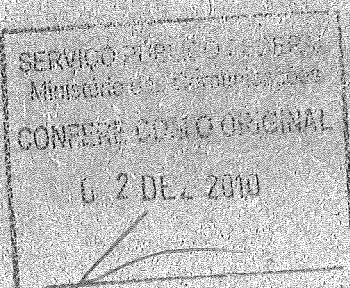 SERVIÇO PÚBLICO FEDERAL
Ministério das Comunicações
CONFERE COM O ORIGINAL
0 2 DEZ 2010